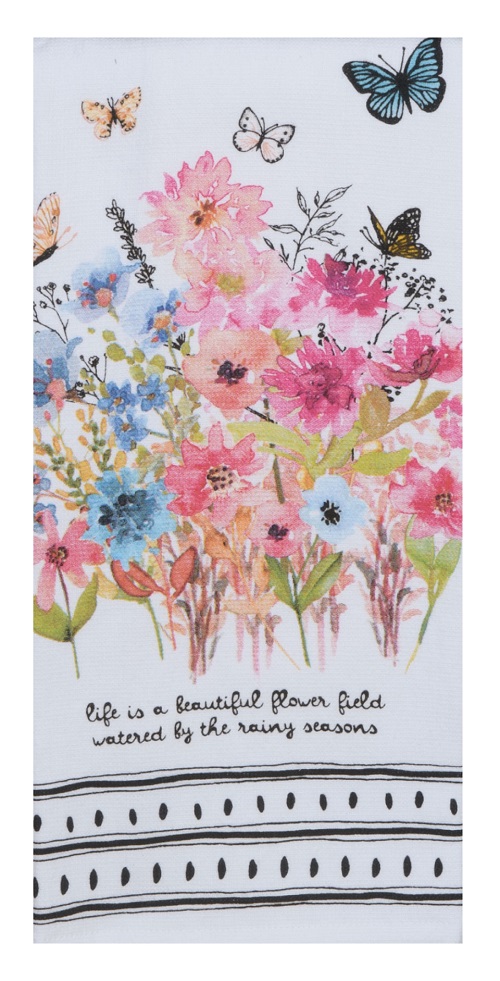 life is a beautiful flower field
watered by the rainy seasons